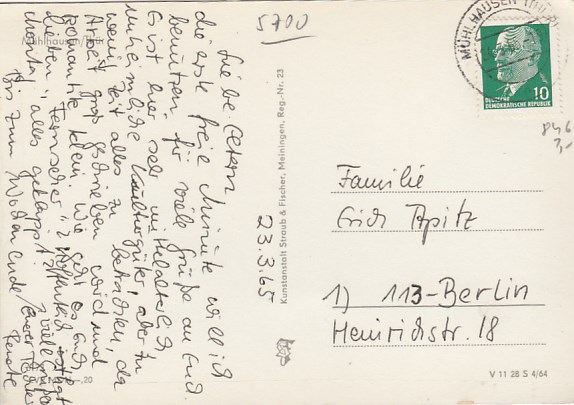 5700
Liebe Eltern,
die erste freie Minute will ich
benützen für viele Grüße an Euch.
Es ist hier sehr mittelalterlich,
unheimliche Kulturgüter, aber zu
wenig Zeit alles zu betrachten, da
Arbeit groß geschrieben wird und
Romantik klein. Wie geht es Euch,
lieben "Fernseher"? Hoffentlich
Montag alles geklappt. Viele Grüße
Bis zum Wochenende Eure
Renate
23.3.65
Mühlhausen/Th
Kunstanstalt Straub & Fischer, Meiningen, Reg.-Nr. 23
MÜHLHAUSEN (THÜR)
10
DEUTSCHE
DEMOKRATISCHE REPUBLIK
846
Familie
Erich Apitz
1) 113-Berlin
Heinrichstr. 18
V 11 28 S 4/64